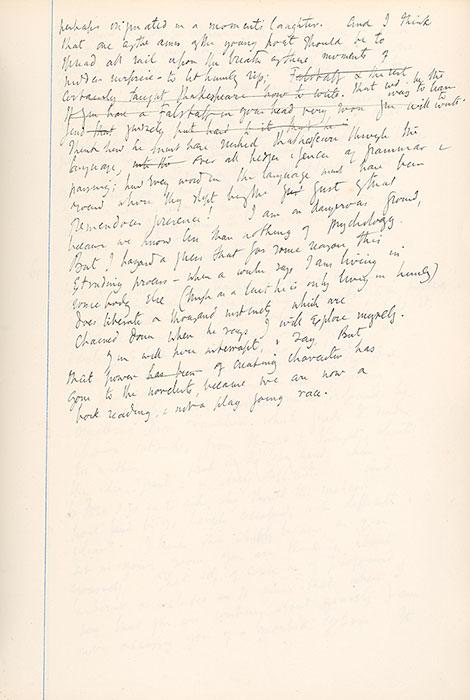 perhaps originated in a moments laughter. And I think
that one of the aims of the young poet should be to
spread all sail upon the breath of these moments of
sudden surprise - to let humility rip; Falstaff & the rest
certainly taught Shakespeare how to write. That was, by the
If you have a Falstaff in your head very soon you will write.
find that yourself put hard to it
was to learn
Think how he must have rushed through the
language, over all hedges & fences of grammar &
parsing; how every word in the language must have been
round where they slept by the gust of that
tremendous presence! I am on dangerous ground,
because we know less than nothing of psychology.
But I hazard a guess that for some reason this
extruding process - when a writer says I am living in
somebody else (though as a last he is only living in himself)
does liberate a thousand instincts which are
chained down when he says I will explore myself.
You will here interrupt, & say. But
that power has been of creating character has
gone to the novelists, because we are now a
book reading, & not a play going race.